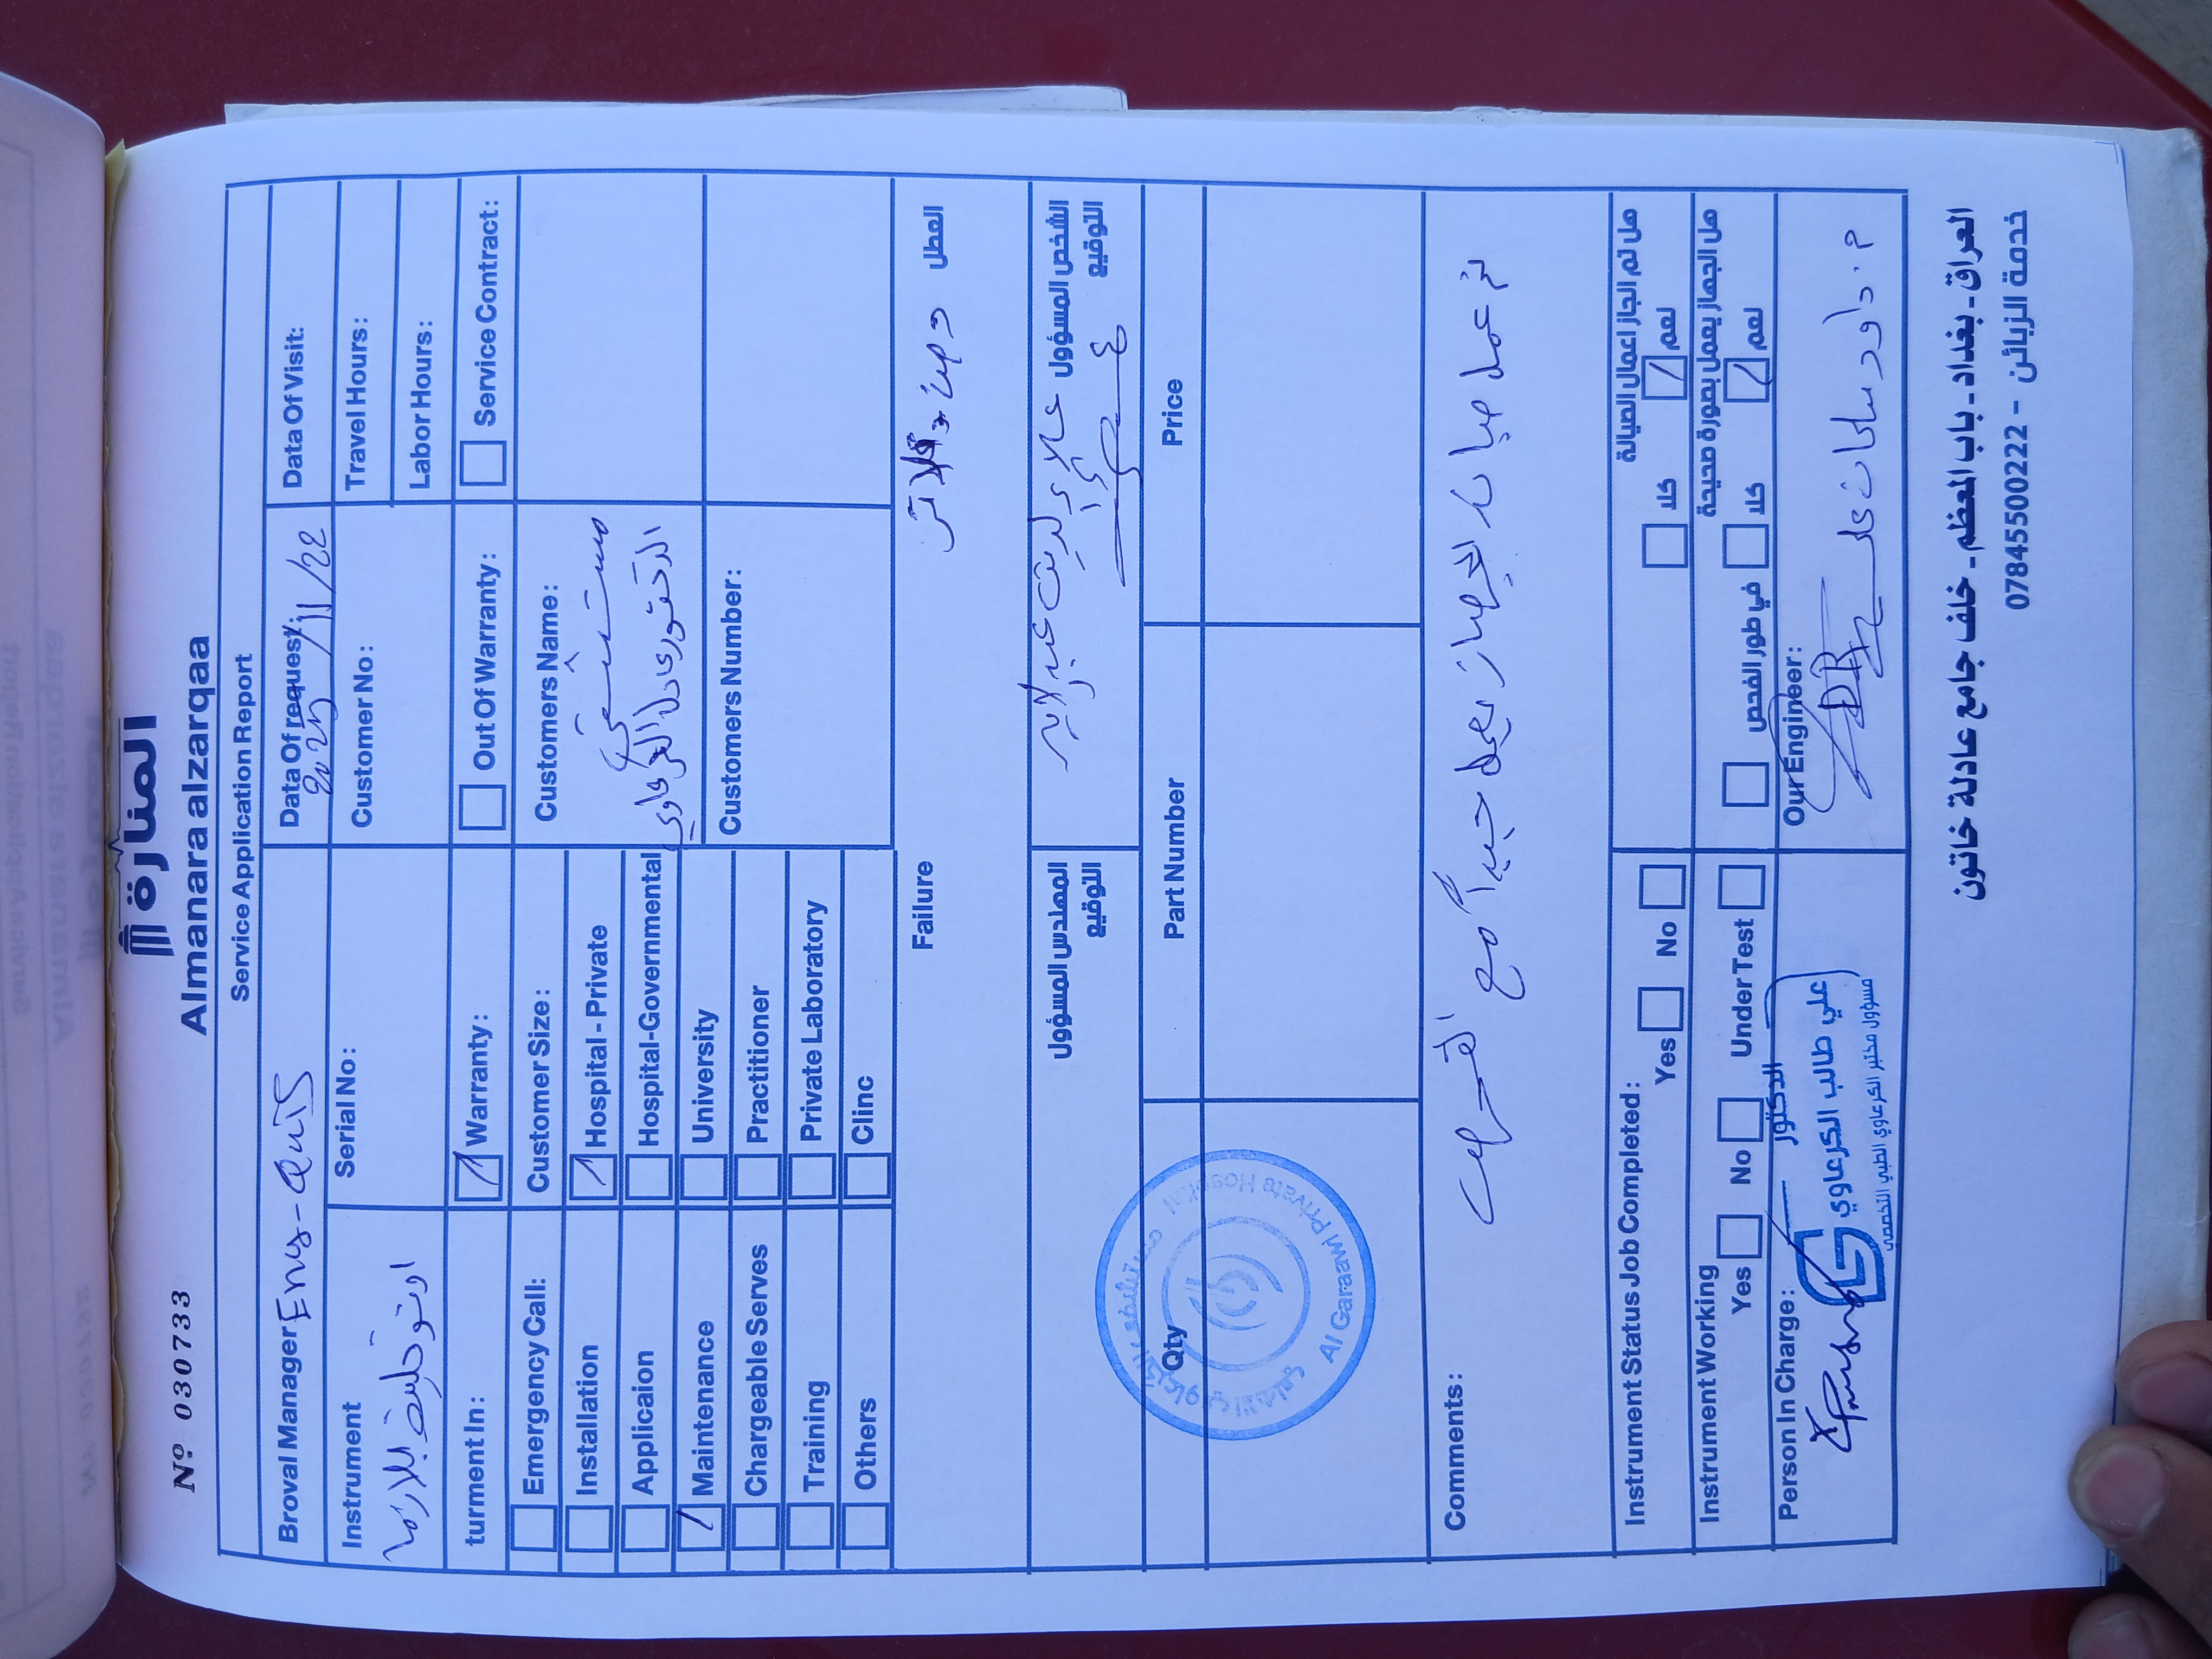 Nº 030733
المنارة
Almanara alzarqaa
Service Application Report
Broval Manager Eng-Qais
Data Of request: 2025/11/22
Data Of Visit:
Instrument
اوتوكليف بلازما
Serial No:
Customer No:
Travel Hours:
Labor Hours:
turment In:
Warranty:
Out Of Warranty:
Service Contract:
Emergency Call:
Installation
Applicaion
Maintenance
Chargeable Serves
Training
Others
Customer Size:
Hospital - Private
Hospital-Governmental
University
Practitioner
Private Laboratory
Clinc
Customers Name:
مستشفى
الدكتور عادل الكرعاوي
Customers Number:
Failure
العطل
المهندس المسؤول
التوقيع
الشخص المسؤول علاء الدين عبد الامير
التوقيع
Qty
Part Number
Price
Al Garaawi Private Hospital
Comments:
تم عمل صيانة للجهاز الجهاز يعمل جيداً مع
Instrument Status Job Completed:
Yes
No
هل تم انجاز اعمال الصيانة
كلا
نعم
Instrument Working
Yes
No
Under Test
هل الجهاز يعمل بصورة صحيحة
في طور الفحص
كلا
نعم
Person In Charge:
الدكتور
علي طالب الكرعاوي
مسؤول مختبر الكرعاوي الطبي التخصصي
Our Engineer:
م. داود سلمان علي
العراق - بغداد - باب المعظم - خلف جامع عادلة خاتون
خدمة الزبائن - 07845500222